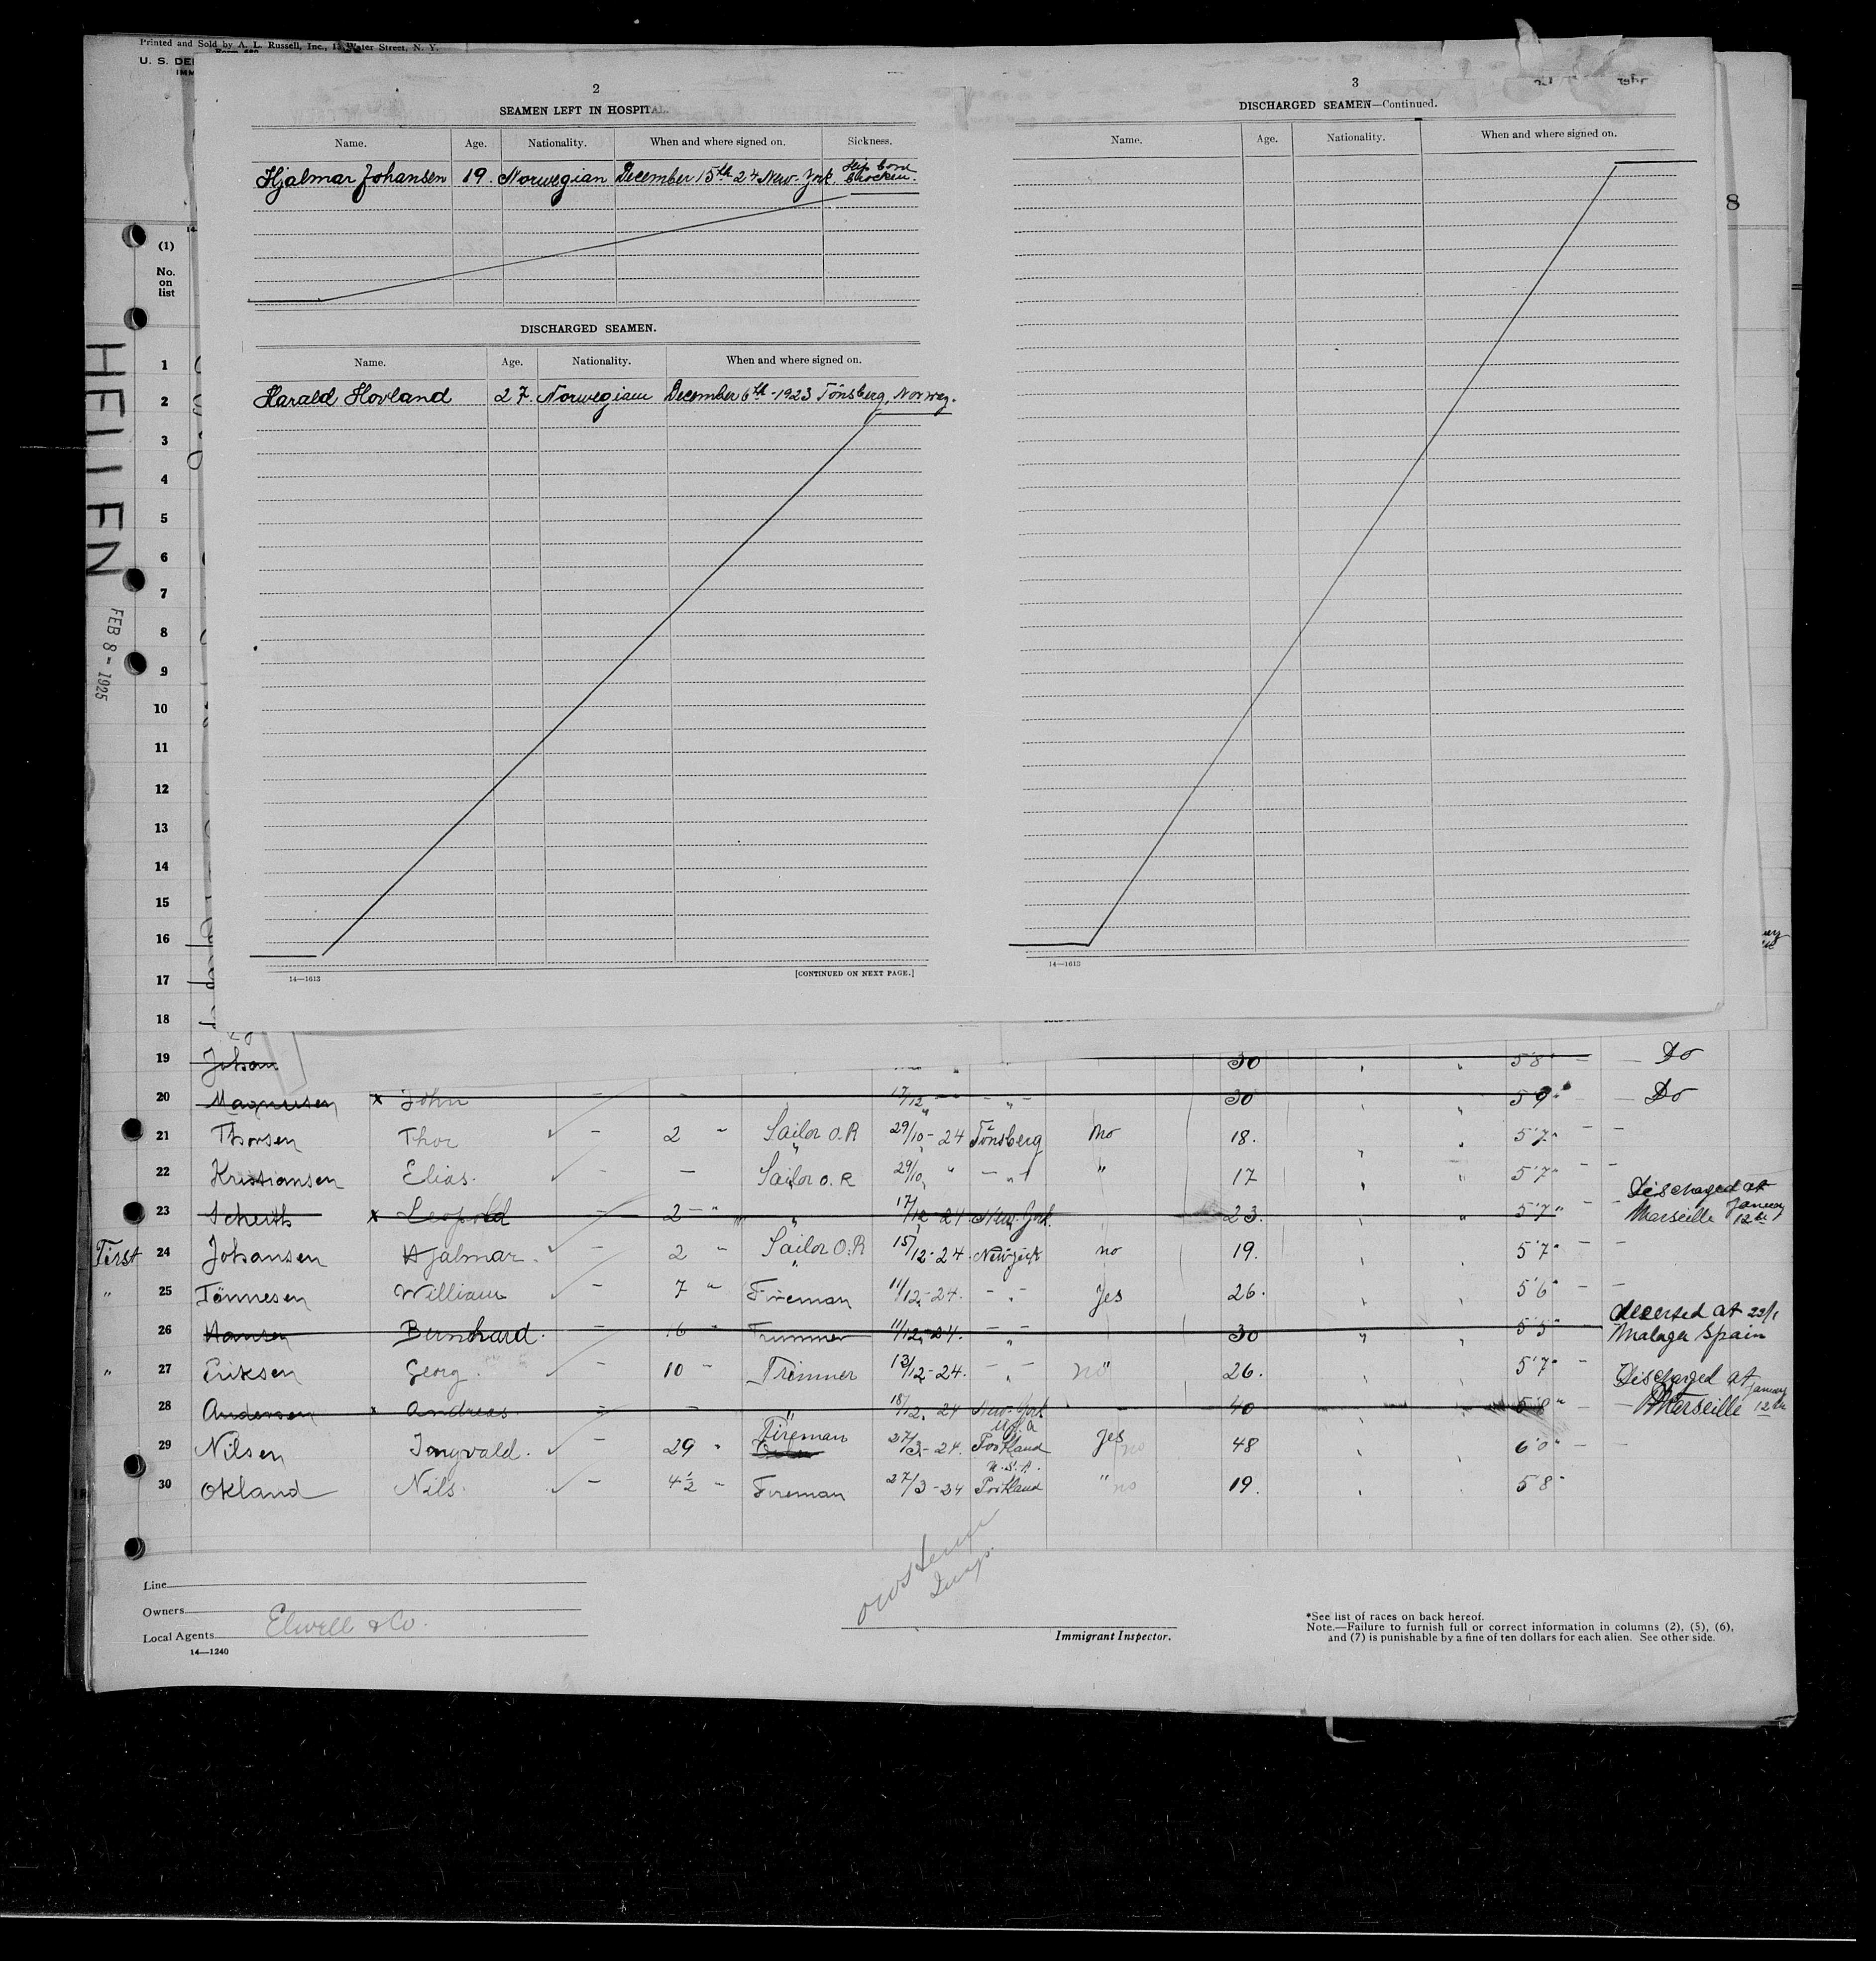 Printed and Sold by A. L. Russell, Inc., Water Street, N. Y.
Form 680
U. S. DE
IMM
2
SEAMEN LEFT IN HOSPITAL.
Name. Age. Nationality. When and where signed on. Sickness.
Hjalmar Johansen 19. Norwegian December 15th 24 New-York. Hip bone brocken.
DISCHARGED SEAMEN.
Name. Age. Nationality. When and where signed on.
Harald Hovland 27. Norwegian December 6th-1923 Tönsberg, Norway.
14—1613 [CONTINUED ON NEXT PAGE.]
3
DISCHARGED SEAMEN—Continued.
Name. Age. Nationality. When and where signed on.
14—1613
8
(1)
No.
on
list
HELLEN
FEB 8 - 1925
1
2
3
4
5
6
7
8
9
10
11
12
13
14
15
16
17
18
19 Johan 30 5'8" — Do
20 Magnusen x John — — 17/12 " — " — 30 " 5'9" — Do
21 Thorsen Thor ✓ — 2 " Sailor O.R 29/10-24 Tönsberg no 18. " 5'7" — —
22 Kristiansen Elias. ✓ — — Sailor O.R 29/10 " — " — " 17 " 5'7" — —
23 Scheith x Leopold — 2 — " " 17/12-24 New-York. 23. " 5'7" — Discharged at Marseille January 12th
First 24 Johansen Hjalmar. ✓ — 2 " Sailor O.R 15/12-24. New-York no 19. 5'7" — —
" 25 Tönnesen William ✓ — 7 " Fireman 11/12-24. — " — Yes 26. 5'6" — —
26 Hansen Bernhard. — 16 " Trimmer 11/12-24. — " — 30 " 5'5" — deserted at 22/1 Malaga Spain
" 27 Eriksen Georg. ✓ — 10 — Trimmer 13/12-24. — " — no " 26. 5'7" —
28 Andersen x Andreas — — " 18/12-24 New-York — 40 5'8" — Discharged at Marseille January 12th
29 Nilsen Ingvald. ✓ — 29 " Fireman 27/3-24. Portland U.S.A Yes no 48 6'0" — —
30 Okland Nils. ✓ — 4½ — Fireman 27/3-24 U.S.A. Portland " no 19. 5'8"
Line
Owners
Local Agents Elwell & Co.
14—1240
Insp.
Immigrant Inspector.
*See list of races on back hereof.
Note.—Failure to furnish full or correct information in columns (2), (5), (6),
and (7) is punishable by a fine of ten dollars for each alien. See other side.